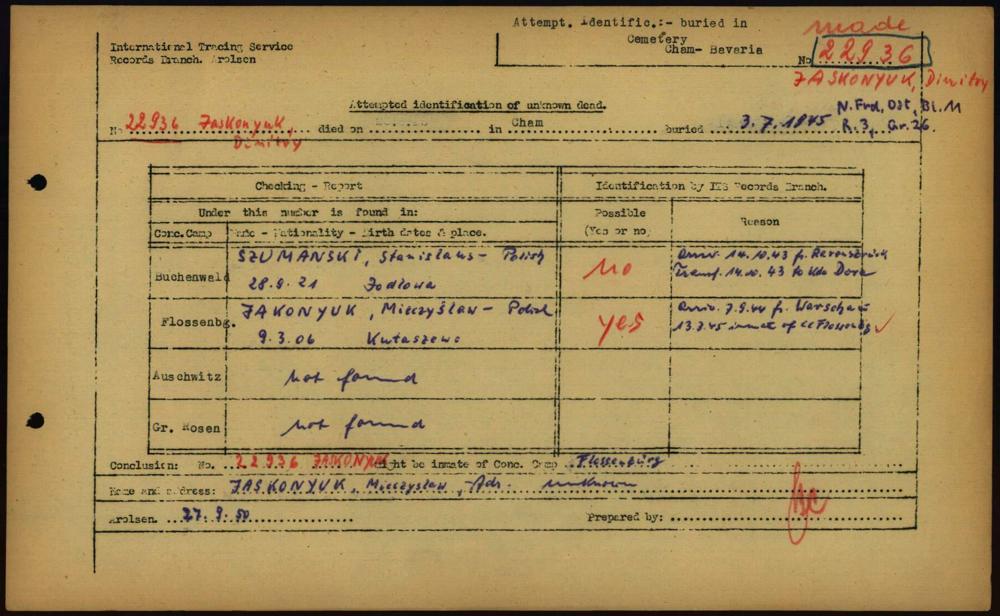 Attempt. Identific.:- buried in
Cemetery
Cham- Bavaria
made
International Tracing Service
Records Branch. Arolsen
No 22936
JASKONYUK, Dimitry
Attempted identification of unknown dead.
N. Frd, Ost, Bl. 11
No 22936 Jaskonyuk, died on ........ in Cham ........ buried .. 3.7.1945 R.3, Gr.26.
Dimitry
Checking - Report
Identification by ITS Records Branch.
Under this number is found in:
Possible
(Yes or no)
Reason
Conc.Camp
Name - Nationality - Birth dates & place.
Buchenwald
SZUMANSKI, Stanislaus - Polish
28.9.21 Jodlowa
no
Arriv. 14.10.43 fr. Ravensbrück
Transf. 14.10.43 to Kdo Dora
Flossenbg.
JAKONYUK, Mieczyslaw - Polish
9.3.06
yes
Arriv. 7.9.44 fr. Warschau
13.7.45 inmat of CC Flossenbg ✓
Auschwitz
not found
Gr. Rosen
not found
Conclusion: No. ..22936 JASKONYUK might be inmate of Conc. Camp .Flossenbürg
Name and address: JASKONYUK, Mieczyslaw, Adr. unknown
Arolsen. ...27.9.50
Prepared by: ........